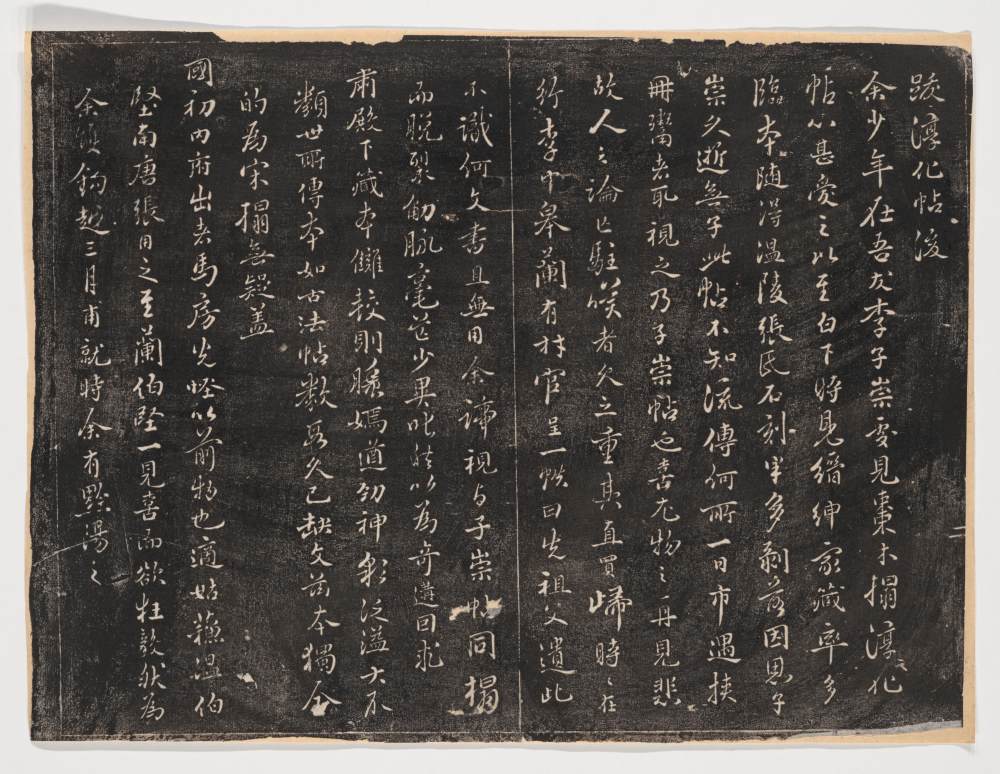 跋淳化帖後
余少年在吾友李子崇處見棗木搨淳化
帖心甚愛之以至白下時見縉紳家藏率多
臨本隨淂溫陵張氏石刻半多剝落因思子
崇久逝無子此帖不知流傳何所一日市遇挾
冊鬻者取視之乃子崇帖也喜尤物之再見悲
故人之論亡駐嘆者久之重其直買歸時時在
行李中皋蘭有材官呈一帙曰先祖父遺此
不識何文書且無用余諦視與子崇帖同搨
而脫裂觔脈毫芒少異叱然以為奇遘回求
肅殿下藏本讎較則腴嫣道勁神彩泛溢大不
類世所傳本如古法帖數段久已缺文茲本獨全
的為宋搨無疑蓋
國初內府出者馬房先蹬以前物也適姑蘇溫伯
堅南唐張用之至蘭伯堅一見喜而欲狂毅然為
余雙鉤越三月甫就時余有黔湯之